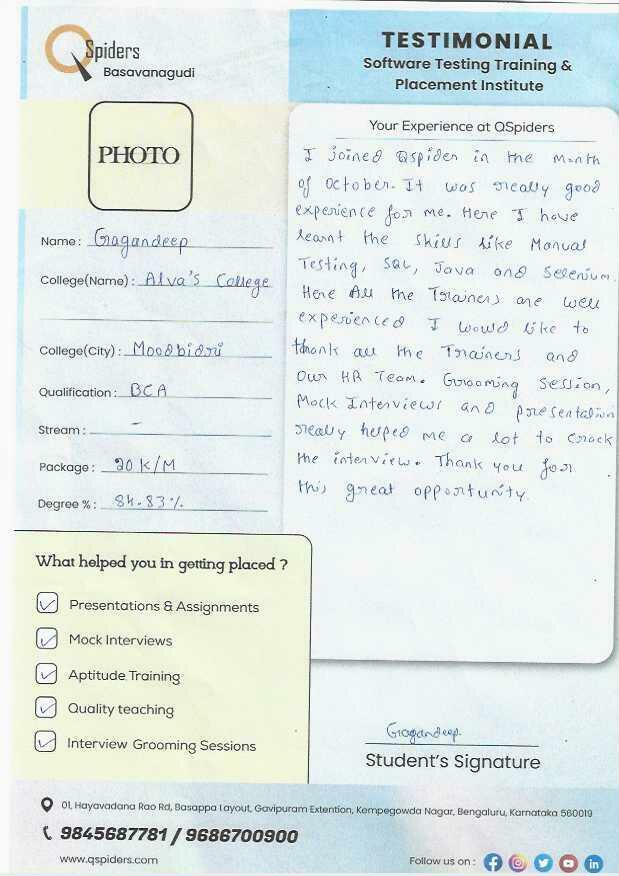 QSpiders
Basavanagudi
TESTIMONIAL
Software Testing Training &
Placement Institute
PHOTO
Name : Gagandeep
College(Name) : Alva's College
College(City) : Moodbidri
Qualification : BCA
Stream : -
Package : 20 K/M
Degree % : 84.83%
Your Experience at QSpiders
I joined Qspider in the month
of October. It was really good
experience for me. Here I have
learnt the skills like Manual
Testing, SQL, Java and Selenium.
Here All the Trainers are well
experienced I would like to
thank all the Trainers and
Our HR Team. Grooming Session,
Mock Interviews and presentation
really helped me a lot to crack
the interview. Thank you for
this great opportunity.
What helped you in getting placed ?
Presentations & Assignments
Mock Interviews
Aptitude Training
Quality teaching
Interview Grooming Sessions
Gagandeep
Student's Signature
01, Hayavadana Rao Rd, Basappa Layout, Gavipuram Extention, Kempegowda Nagar, Bengaluru, Karnataka 560019
9845687781 / 9686700900
www.qspiders.com
Follow us on :